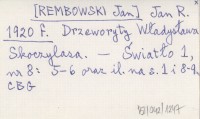 [REMBOWSKI Jan] Jan R.
1920 r. Drzeworyty Władysława
Skoczylasa. — Światło 1,
nr 8: 5-6 oraz il. na s. 1 i 8-9.
CBG